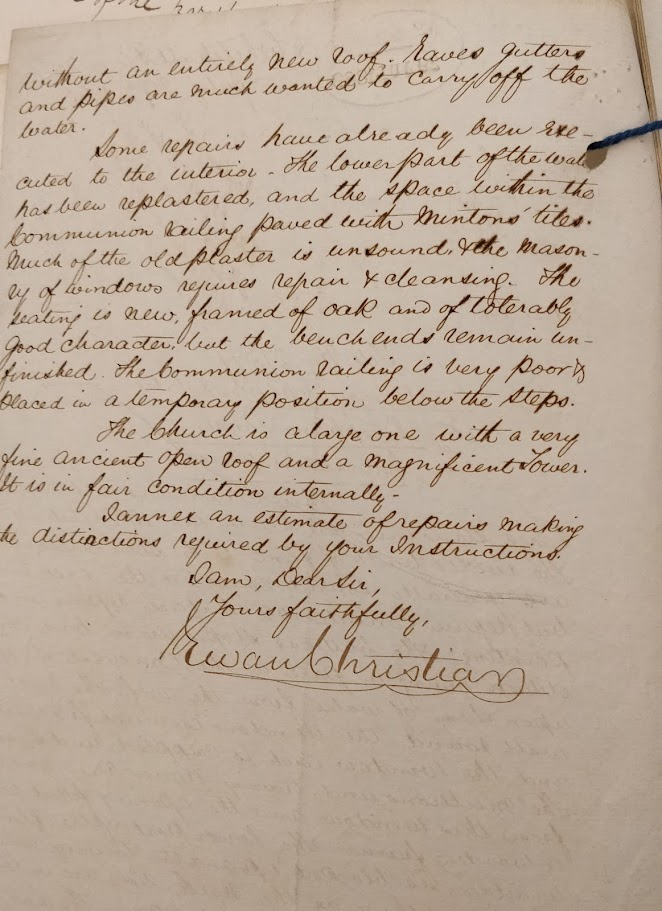 without an entirely new roof. Eaves gutters
and pipes are much wanted to carry off the
water.
Some repairs have already been exe-
cuted to the interior - The lower part of the walls
has been replastered, and the space within the
Communion railing paved with Mintons' tiles.
Much of the old plaster is unsound, & the mason-
ry of windows requires repair & cleansing. The
seating is new, framed of oak and of tolerably
good character, but the bench ends remain un-
finished. The Communion railing is very poor &
placed in a temporary position below the steps.
The Church is a large one with a very
fine ancient open roof and a magnificent Tower.
It is in fair condition internally -
I annex an estimate of repairs making
the distinctions required by your Instructions.
I am, Dear Sir,
Yours faithfully,
Ewan Christian